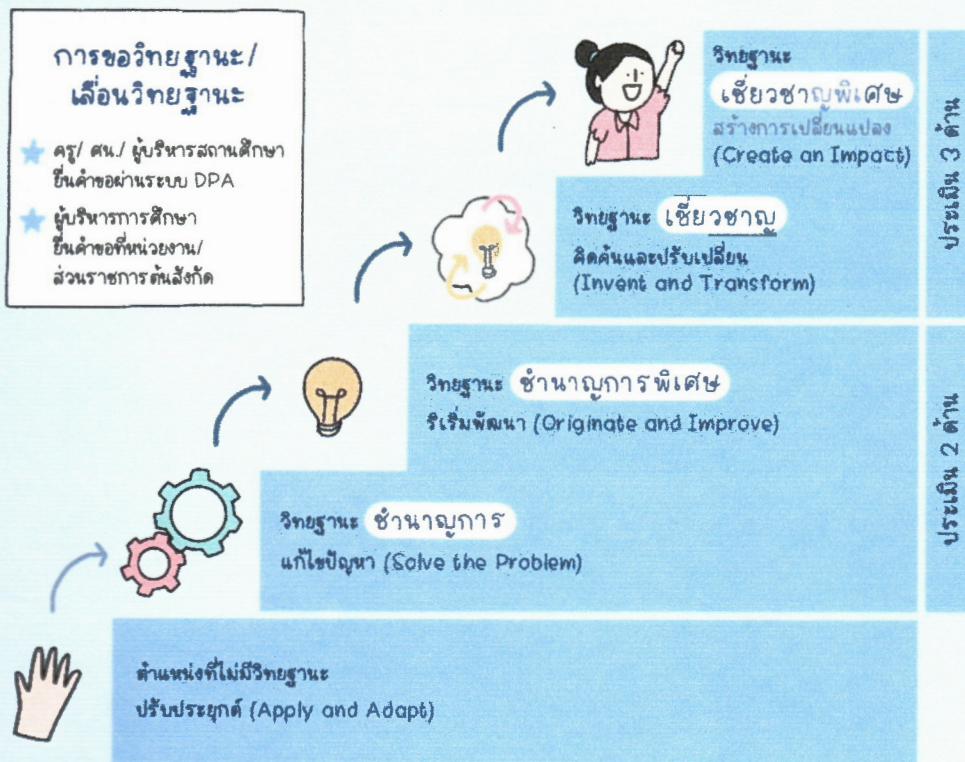 การขอวิทยฐานะ/
เลื่อนวิทยฐานะ
ครู/ ศน./ ผู้บริหารสถานศึกษา
ยื่นคำขอผ่านระบบ DPA
ผู้บริหารการศึกษา
ยื่นคำขอที่หน่วยงาน/
ส่วนราชการต้นสังกัด
วิทยฐานะ
เชี่ยวชาญพิเศษ
สร้างการเปลี่ยนแปลง
(Create an Impact)
วิทยฐานะ เชี่ยวชาญ
คิดค้นและปรับเปลี่ยน
(Invent and Transform)
ประเมิน 3 ด้าน
วิทยฐานะ ชำนาญการพิเศษ
ริเริ่มพัฒนา (Originate and Improve)
วิทยฐานะ ชำนาญการ
แก้ไขปัญหา (Solve the Problem)
ประเมิน 2 ด้าน
ตำแหน่งที่ไม่มีวิทยฐานะ
ปรับประยุกต์ (Apply and Adapt)